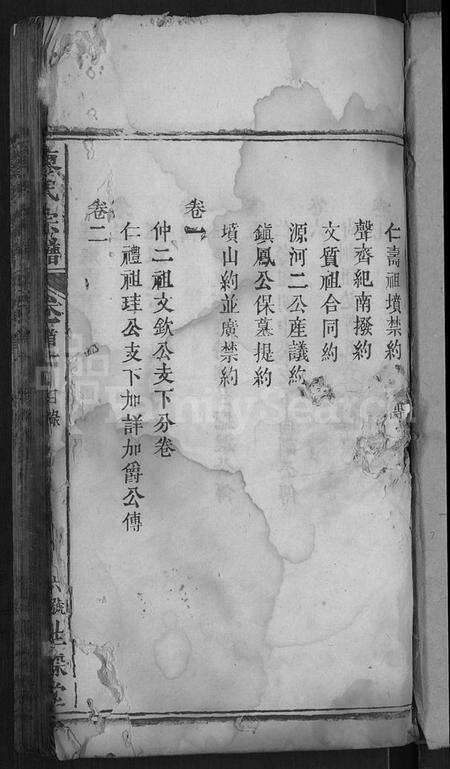 仁壽祖墳禁約
聲齊紀南撥約
文質祖合同約
源河二公產議約
鎮鳳公保墓提約
墳山約並廣禁約
卷一
仲二祖文欽公支下分卷
仁禮祖珪公支下加詳加爵公傳
卷二
氏宗譜
卷首
目錄